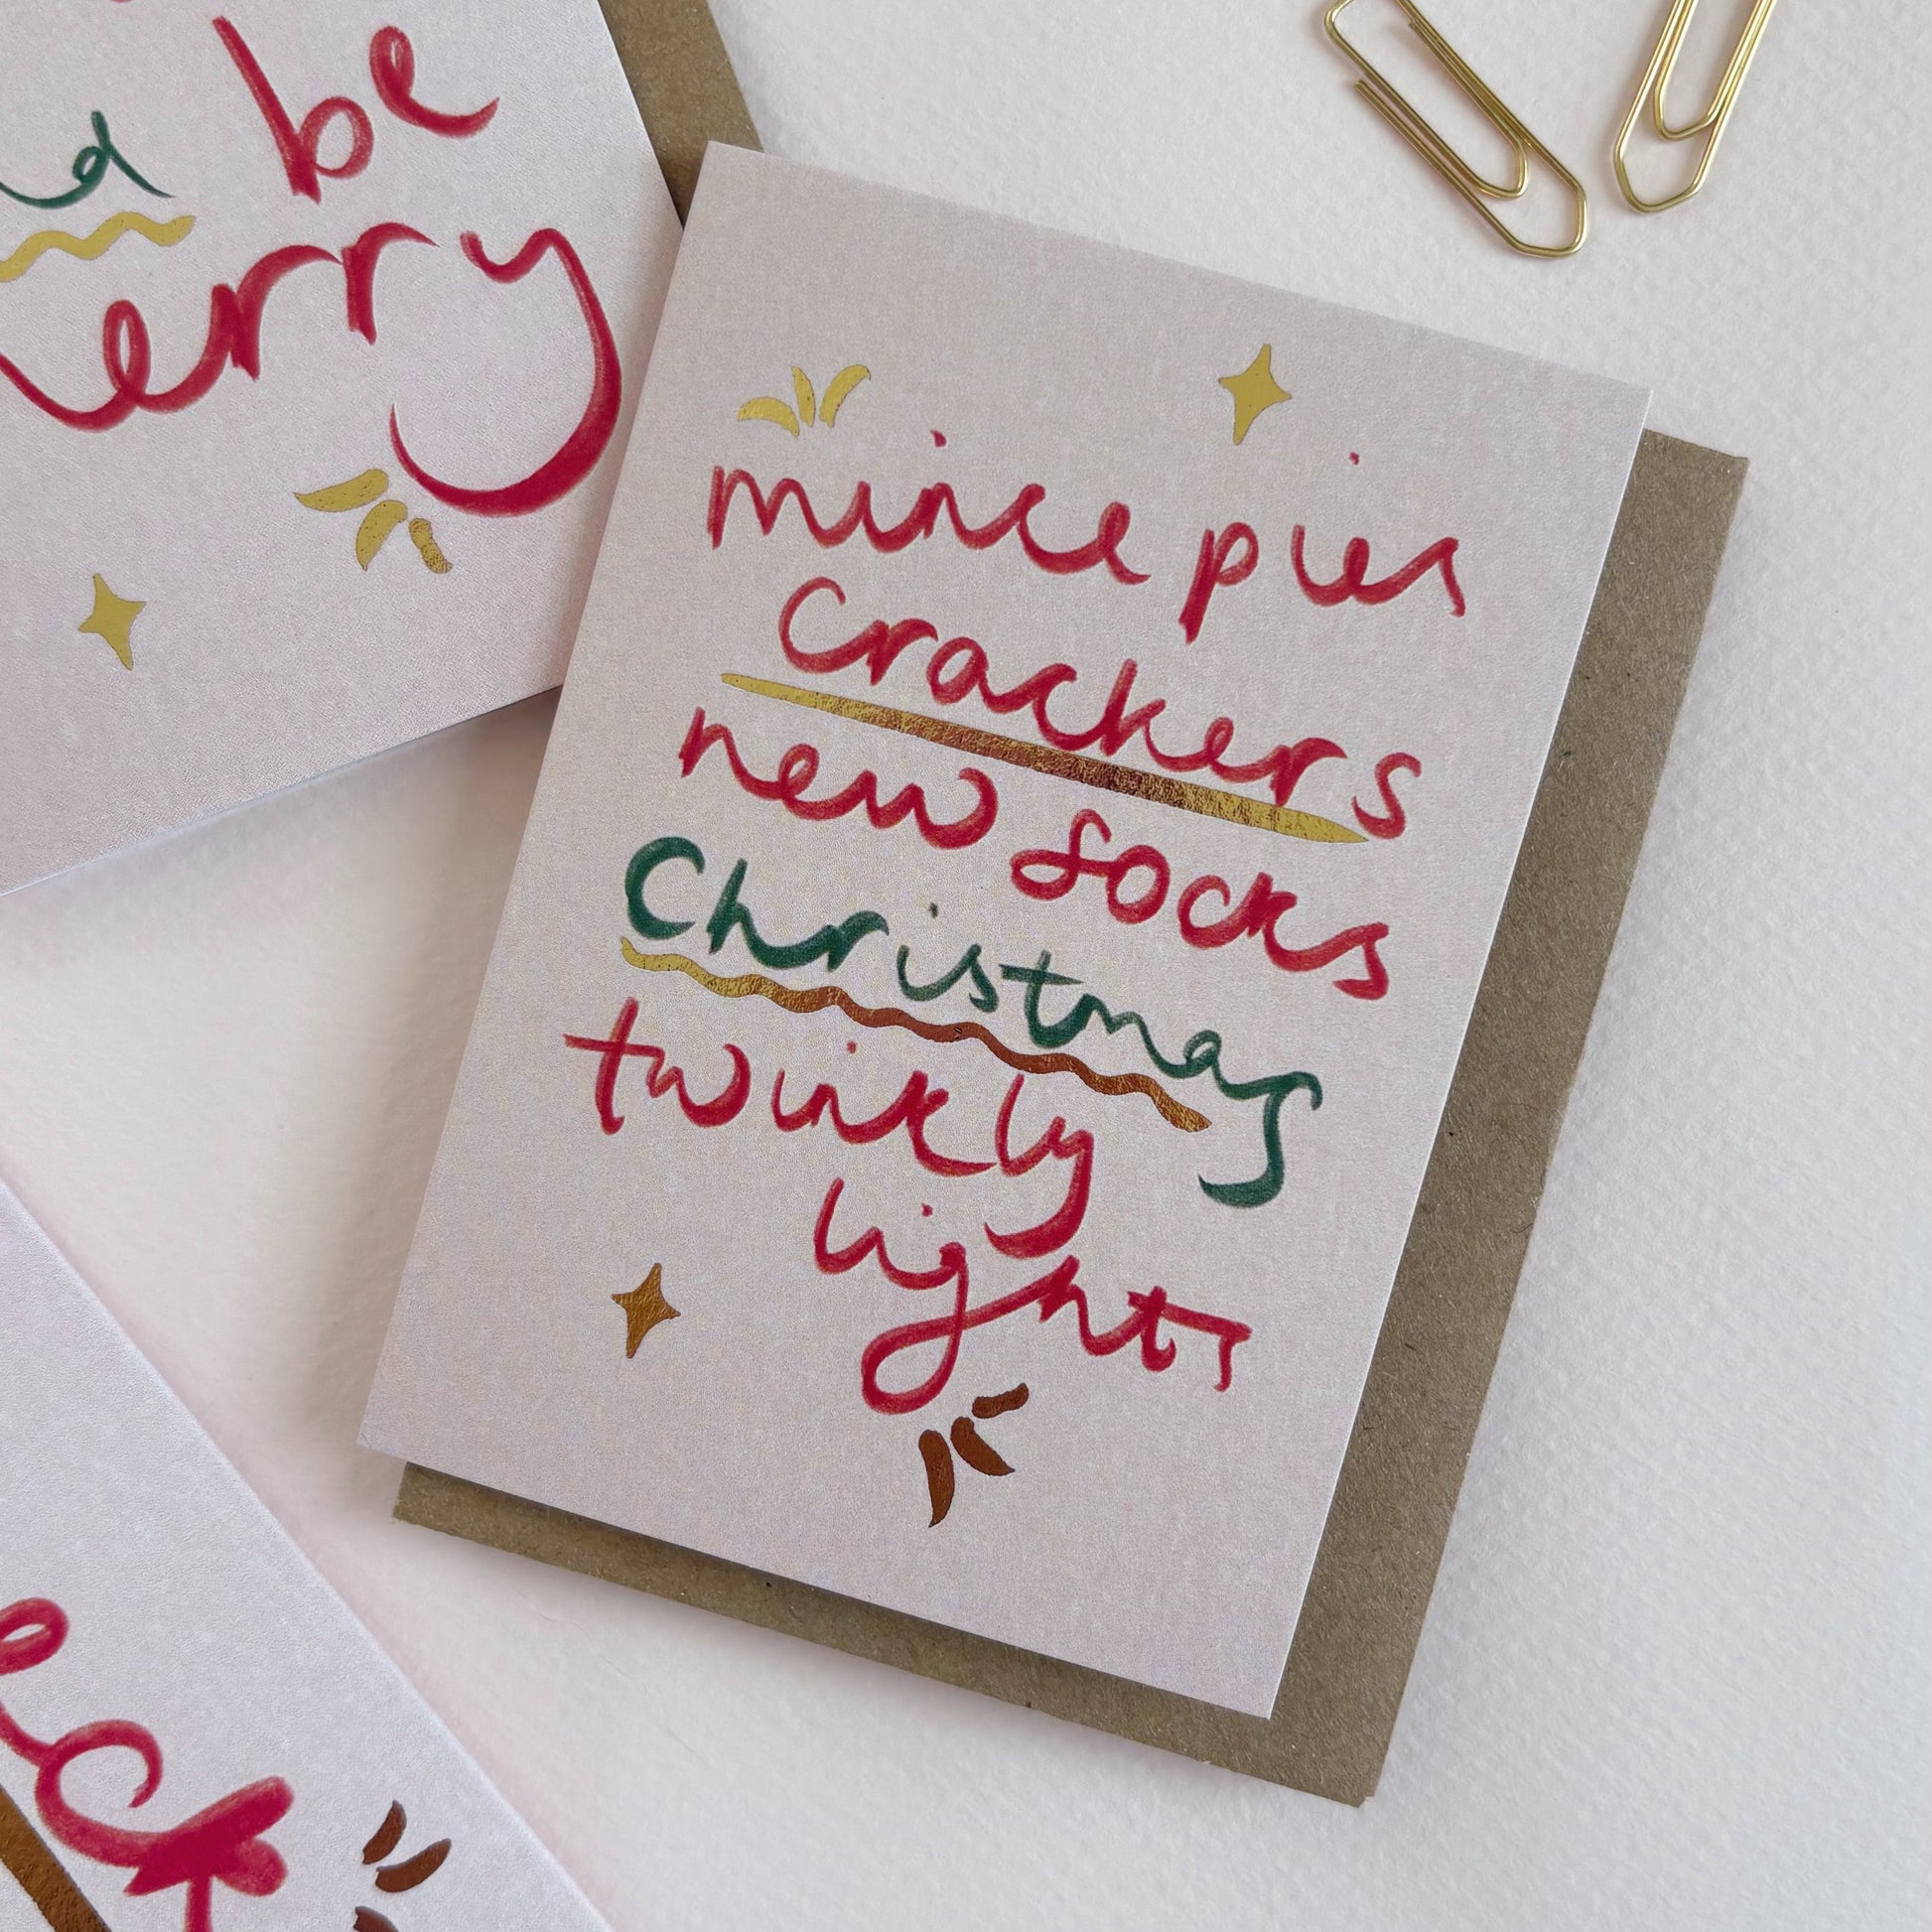 be
erry
mince pies
Crackers
new socks
Christmas
twinkly
lights